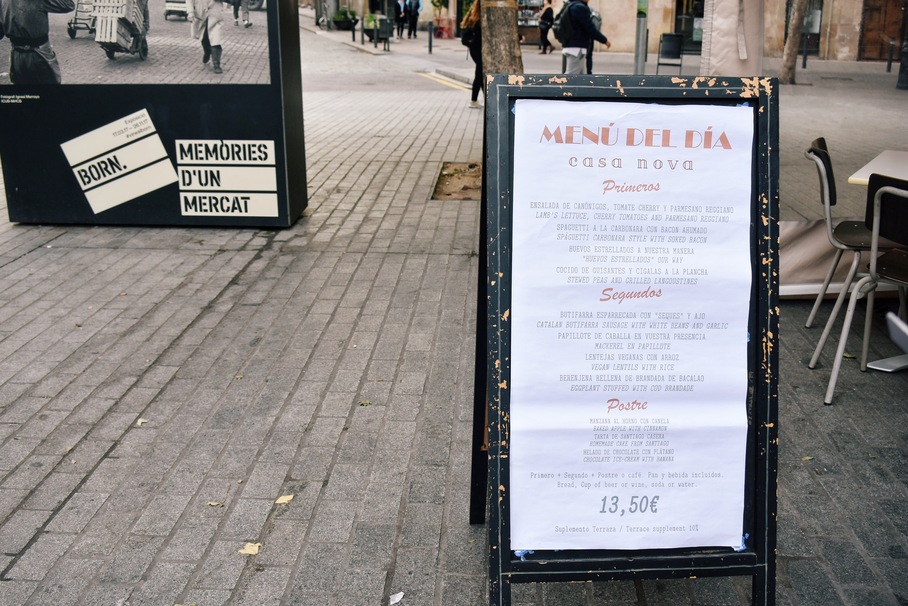 Exposició
BORN.
MEMÒRIES
D'UN
MERCAT
MENÚ DEL DÍA
casa nova
Primeros
ENSALADA DE CANÓNIGOS, TOMATE CHERRY Y PARMESANO REGGIANO
LAMB'S LETTUCE, CHERRY TOMATOES AND PARMESANO REGGIANO
SPAGUETTI A LA CARBONARA CON BACON AHUMADO
SPAGUETTI CARBONARA STYLE WITH SMKED BACON
HUEVOS ESTRELLADOS A NUESTRA MANERA
"HUEVOS ESTRELLADOS" OUR WAY
COCIDO DE GUISANTES Y CIGALAS A LA PLANCHA
STEWED PEAS AND GRILLED LANGOUSTINES
Segundos
BUTIFARRA ESPARRECADA CON "SEQUES" Y AJO
CATALAN BUTIFARRA SAUSAGE WITH WHITE BEANS AND GARLIC
PAPILLOTE DE CABALLA EN VUESTRA PRESENCIA
MACKEREL EN PAPILLOTE
LENTEJAS VEGANAS CON ARROZ
VEGAN LENTILS WITH RICE
BERENJENA RELLENA DE BRANDADA DE BACALAO
EGGPLANT STUFFED WITH COD BRANDADE
Postre
MANZANA AL HORNO CON CANELA
BAKED APPLE WITH CINNAMON
TARTA DE SANTIAGO CASERA
HOMEMADE CAKE FROM SANTIAGO
HELADO DE CHOCOLATE CON PLÁTANO
CHOCOLATE ICE-CREAM WITH BANANA
Primero + Segundo + Postre o café. Pan y bebida incluidos.
Bread, Cup of beer or wine, soda or water.
13,50€
Suplemento Terraza / Terrace supplement 10%